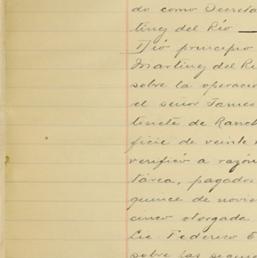 do como Secreta
tinez del Rio
Dió principio
Martinez del Ri
sobre la operacio
el señor James
tinete de Ranch
ficie de veinte
verificó a razón
tarea, pagados
quince de novie
cinco otorgada
Lic. Federico E
sobre las seguri